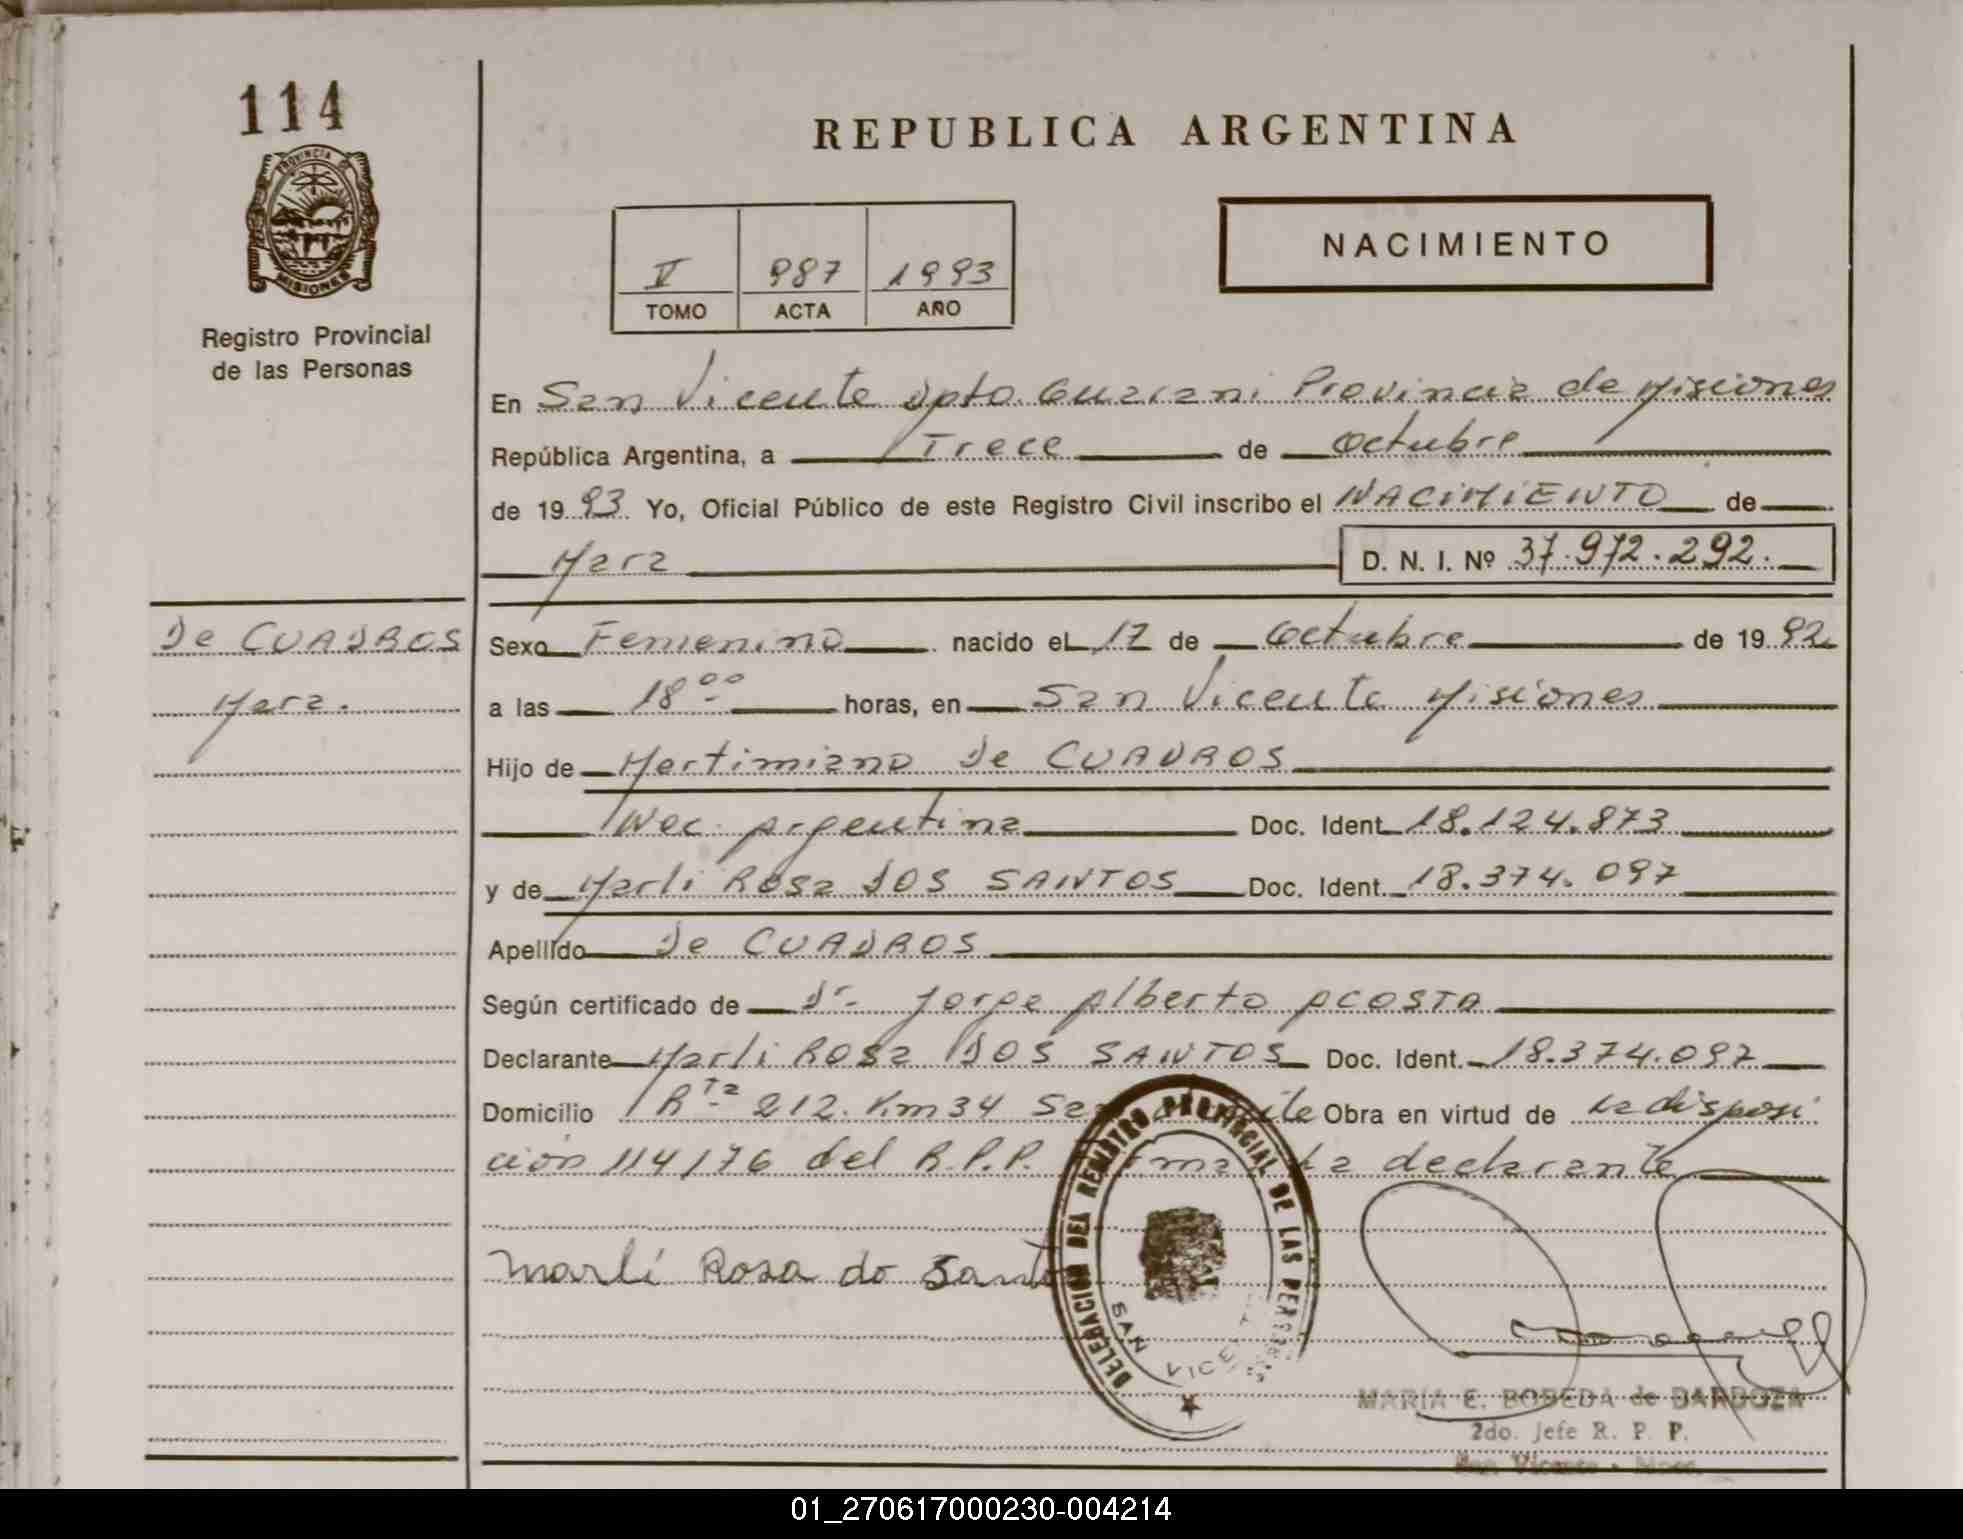 114
PROVINCIA
MISIONES
Registro Provincial
de las Personas
REPUBLICA ARGENTINA
V 987 1993
TOMO ACTA AÑO
NACIMIENTO
En San Vicente Dpto Guarani Provincia de Misiones
República Argentina, a Trece de octubre
de 1993 Yo, Oficial Público de este Registro Civil inscribo el NACIMIENTO de
Mara D. N. I. Nº 37.972.292.
De CUADROS
Mara.
Sexo Femenino nacido el 17 de octubre de 1992
a las 18⁰⁰ horas, en San Vicente Misiones
Hijo de Martimiano De CUADROS
Nac. Argentina Doc. Ident. 18.124.873
y de Marli Rosa DOS SANTOS Doc. Ident. 18.374.097
Apellido De CUADROS
Según certificado de Dr. Jorge Alberto ACOSTA
Declarante Marli Rosa DOS SANTOS Doc. Ident. 18.374.097
Domicilio Rta 212. Km 34 San Obra en virtud de la disposi
ción 114/76 del R.P.P. Firma la declarante
Marlí Rosa do Santo
DELEGACION DEL REGISTRO PROVINCIAL DE LAS PERSONAS
SAN VICENTE
MARIA E. BOBEDA de BARBOZA
2do. Jefe R. P. P.
San Vicente - Mnes.
01_270617000230-004214